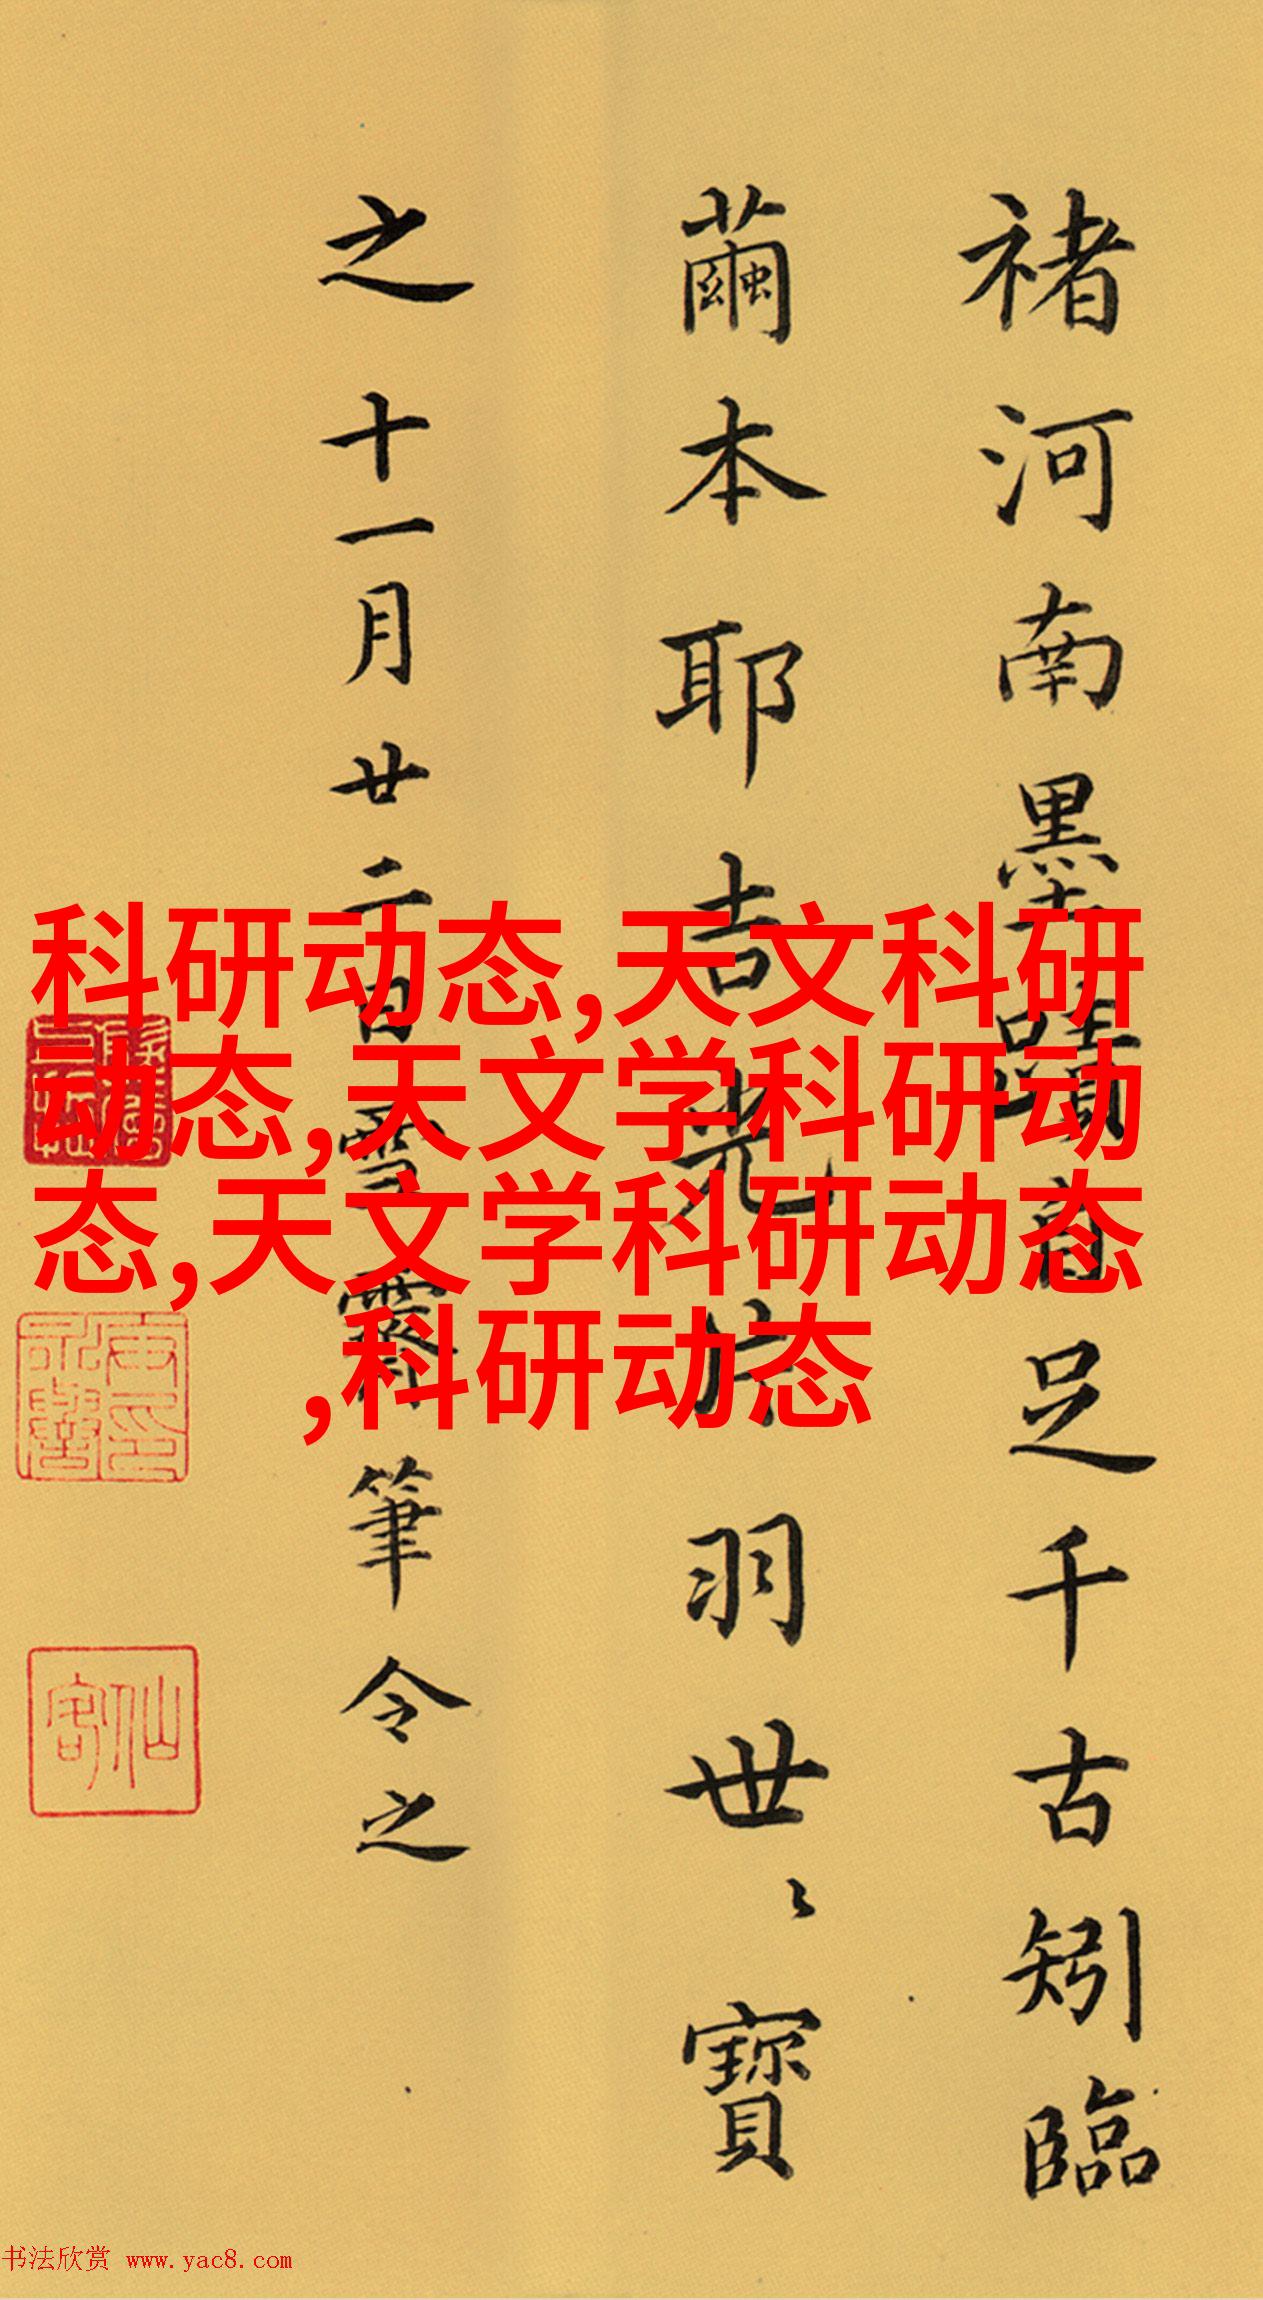 褚河南墨蹟自足千古矧臨
繭本耶吉光片羽世〻寶
之十一月廿二日雪霽筆令之
科研动态,天文科研
动态,天文学科研动
态,天文学科研动态
,科研动态
仙客
书法欣赏 www.yac8.com